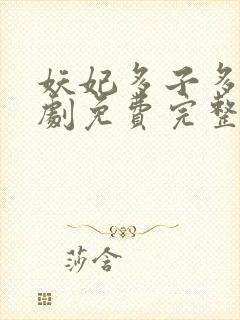 妖妃多子多
劇免費完整
莎含